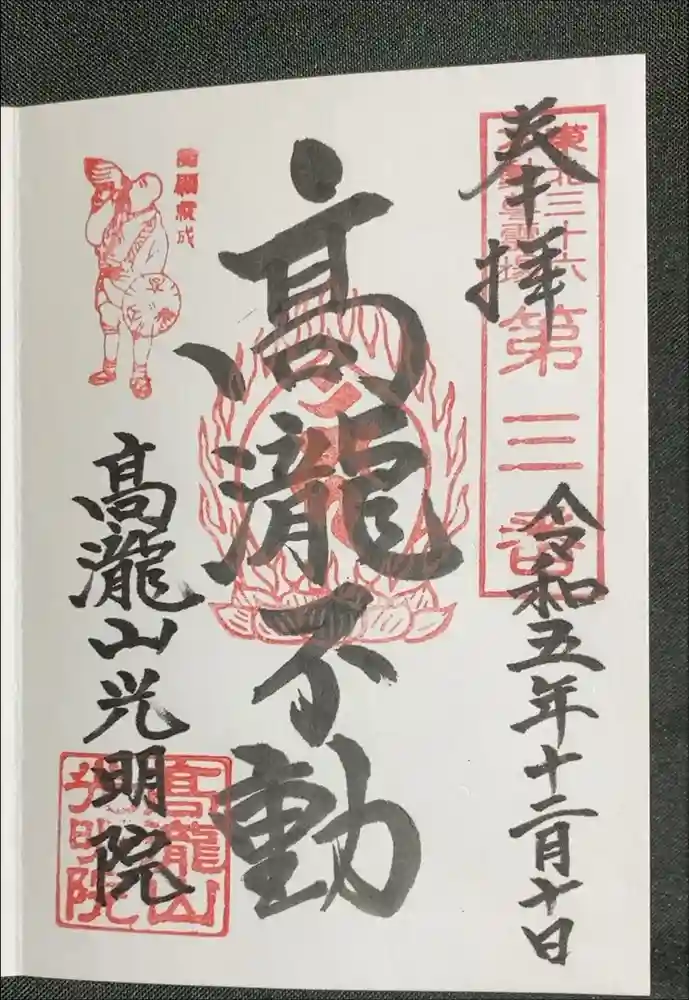 奉拝
東北三十六
不動尊霊場
第三番
令和五年十二月十日
高瀧不動
高瀧山光明院
高瀧山
光明院